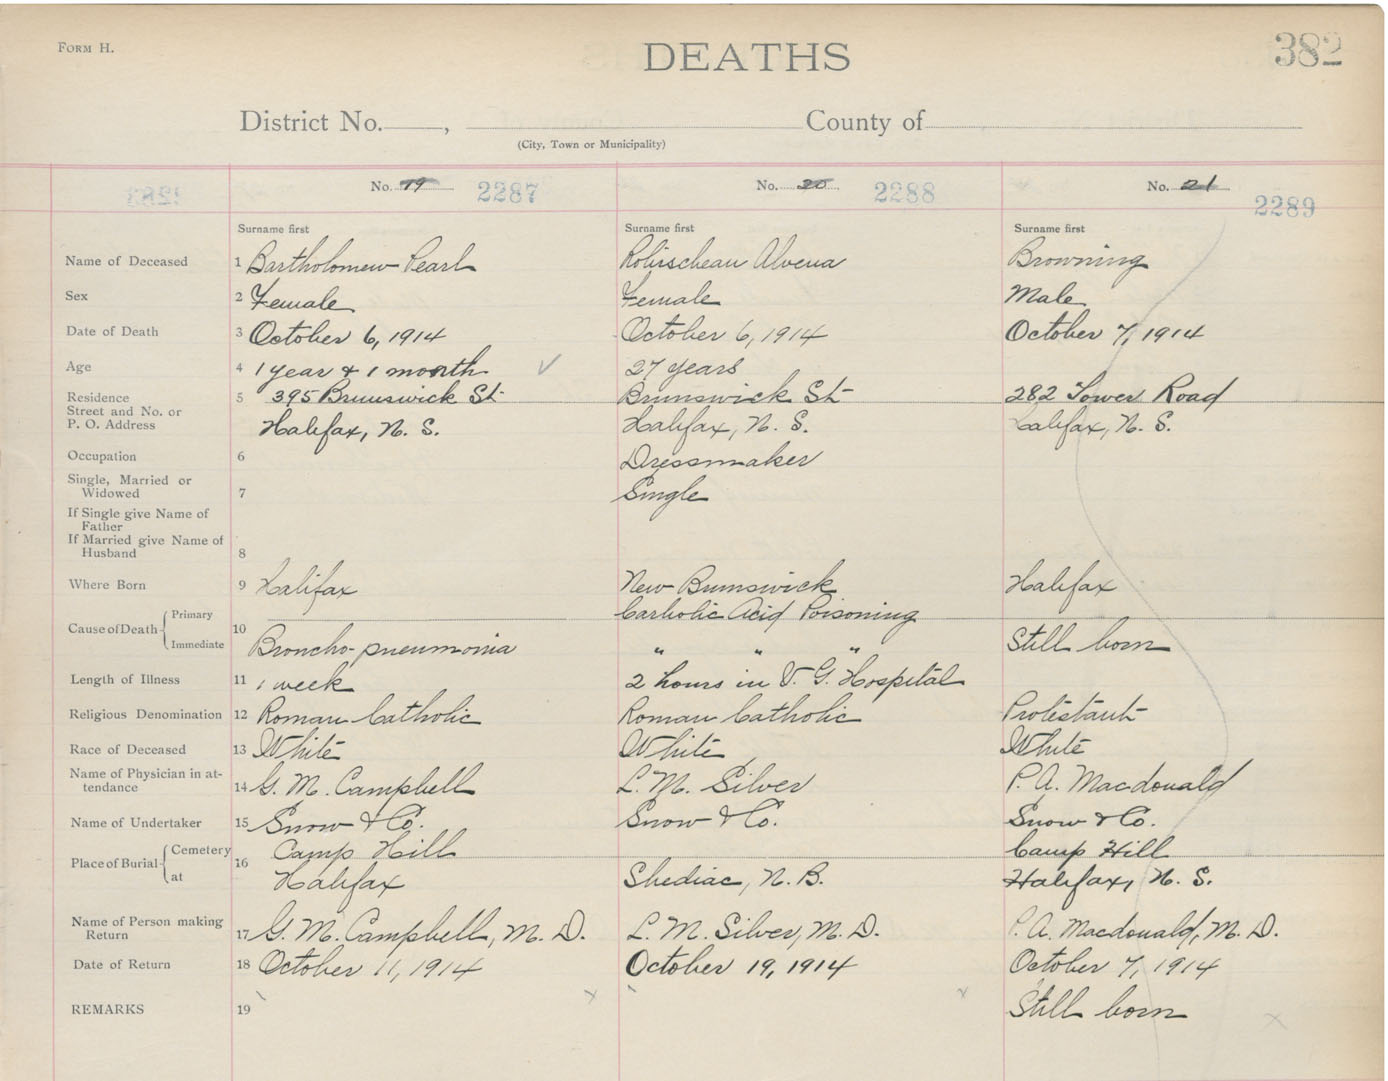 FORM H.
DEATHS
382
District No. , County of
(City, Town or Municipality)
No. 19 2287
No. 20 2288
No. 21 2289
Surname first Surname first Surname first
Name of Deceased 1 Bartholomew Pearl Robischeau Alvena Browning
Sex 2 Female Female Male
Date of Death 3 October 6, 1914 October 6, 1914 October 7, 1914
Age 4 1 year & 1 month 27 years
Residence 5 395 Brunswick St. Brunswick St 282 Tower Road
Street and No. or
P. O. Address Halifax, N. S. Halifax, N. S. Halifax, N. S.
Occupation 6 Dressmaker
Single, Married or
Widowed 7 Single
If Single give Name of
Father
If Married give Name of
Husband 8
Where Born 9 Halifax New Brunswick Halifax
Cause of Death Primary 10 Carbolic Acid Poisoning
Immediate Broncho-pneumonia " " " Still born
Length of Illness 11 1 week 2 hours in V. G. Hospital
Religious Denomination 12 Roman Catholic Roman Catholic Protestant
Race of Deceased 13 White White White
Name of Physician in at-
tendance 14 G. M. Campbell L. M. Silver P. A. Macdonald
Name of Undertaker 15 Snow & Co. Snow & Co. Snow & Co.
Place of Burial Cemetery 16 Camp Hill Camp Hill
at Halifax Shediac, N. B. Halifax, N. S.
Name of Person making
Return 17 G. M. Campbell, M. D. L. M. Silver, M. D. P. A. Macdonald, M. D.
Date of Return 18 October 11, 1914 October 19, 1914 October 7, 1914
REMARKS 19 Still born